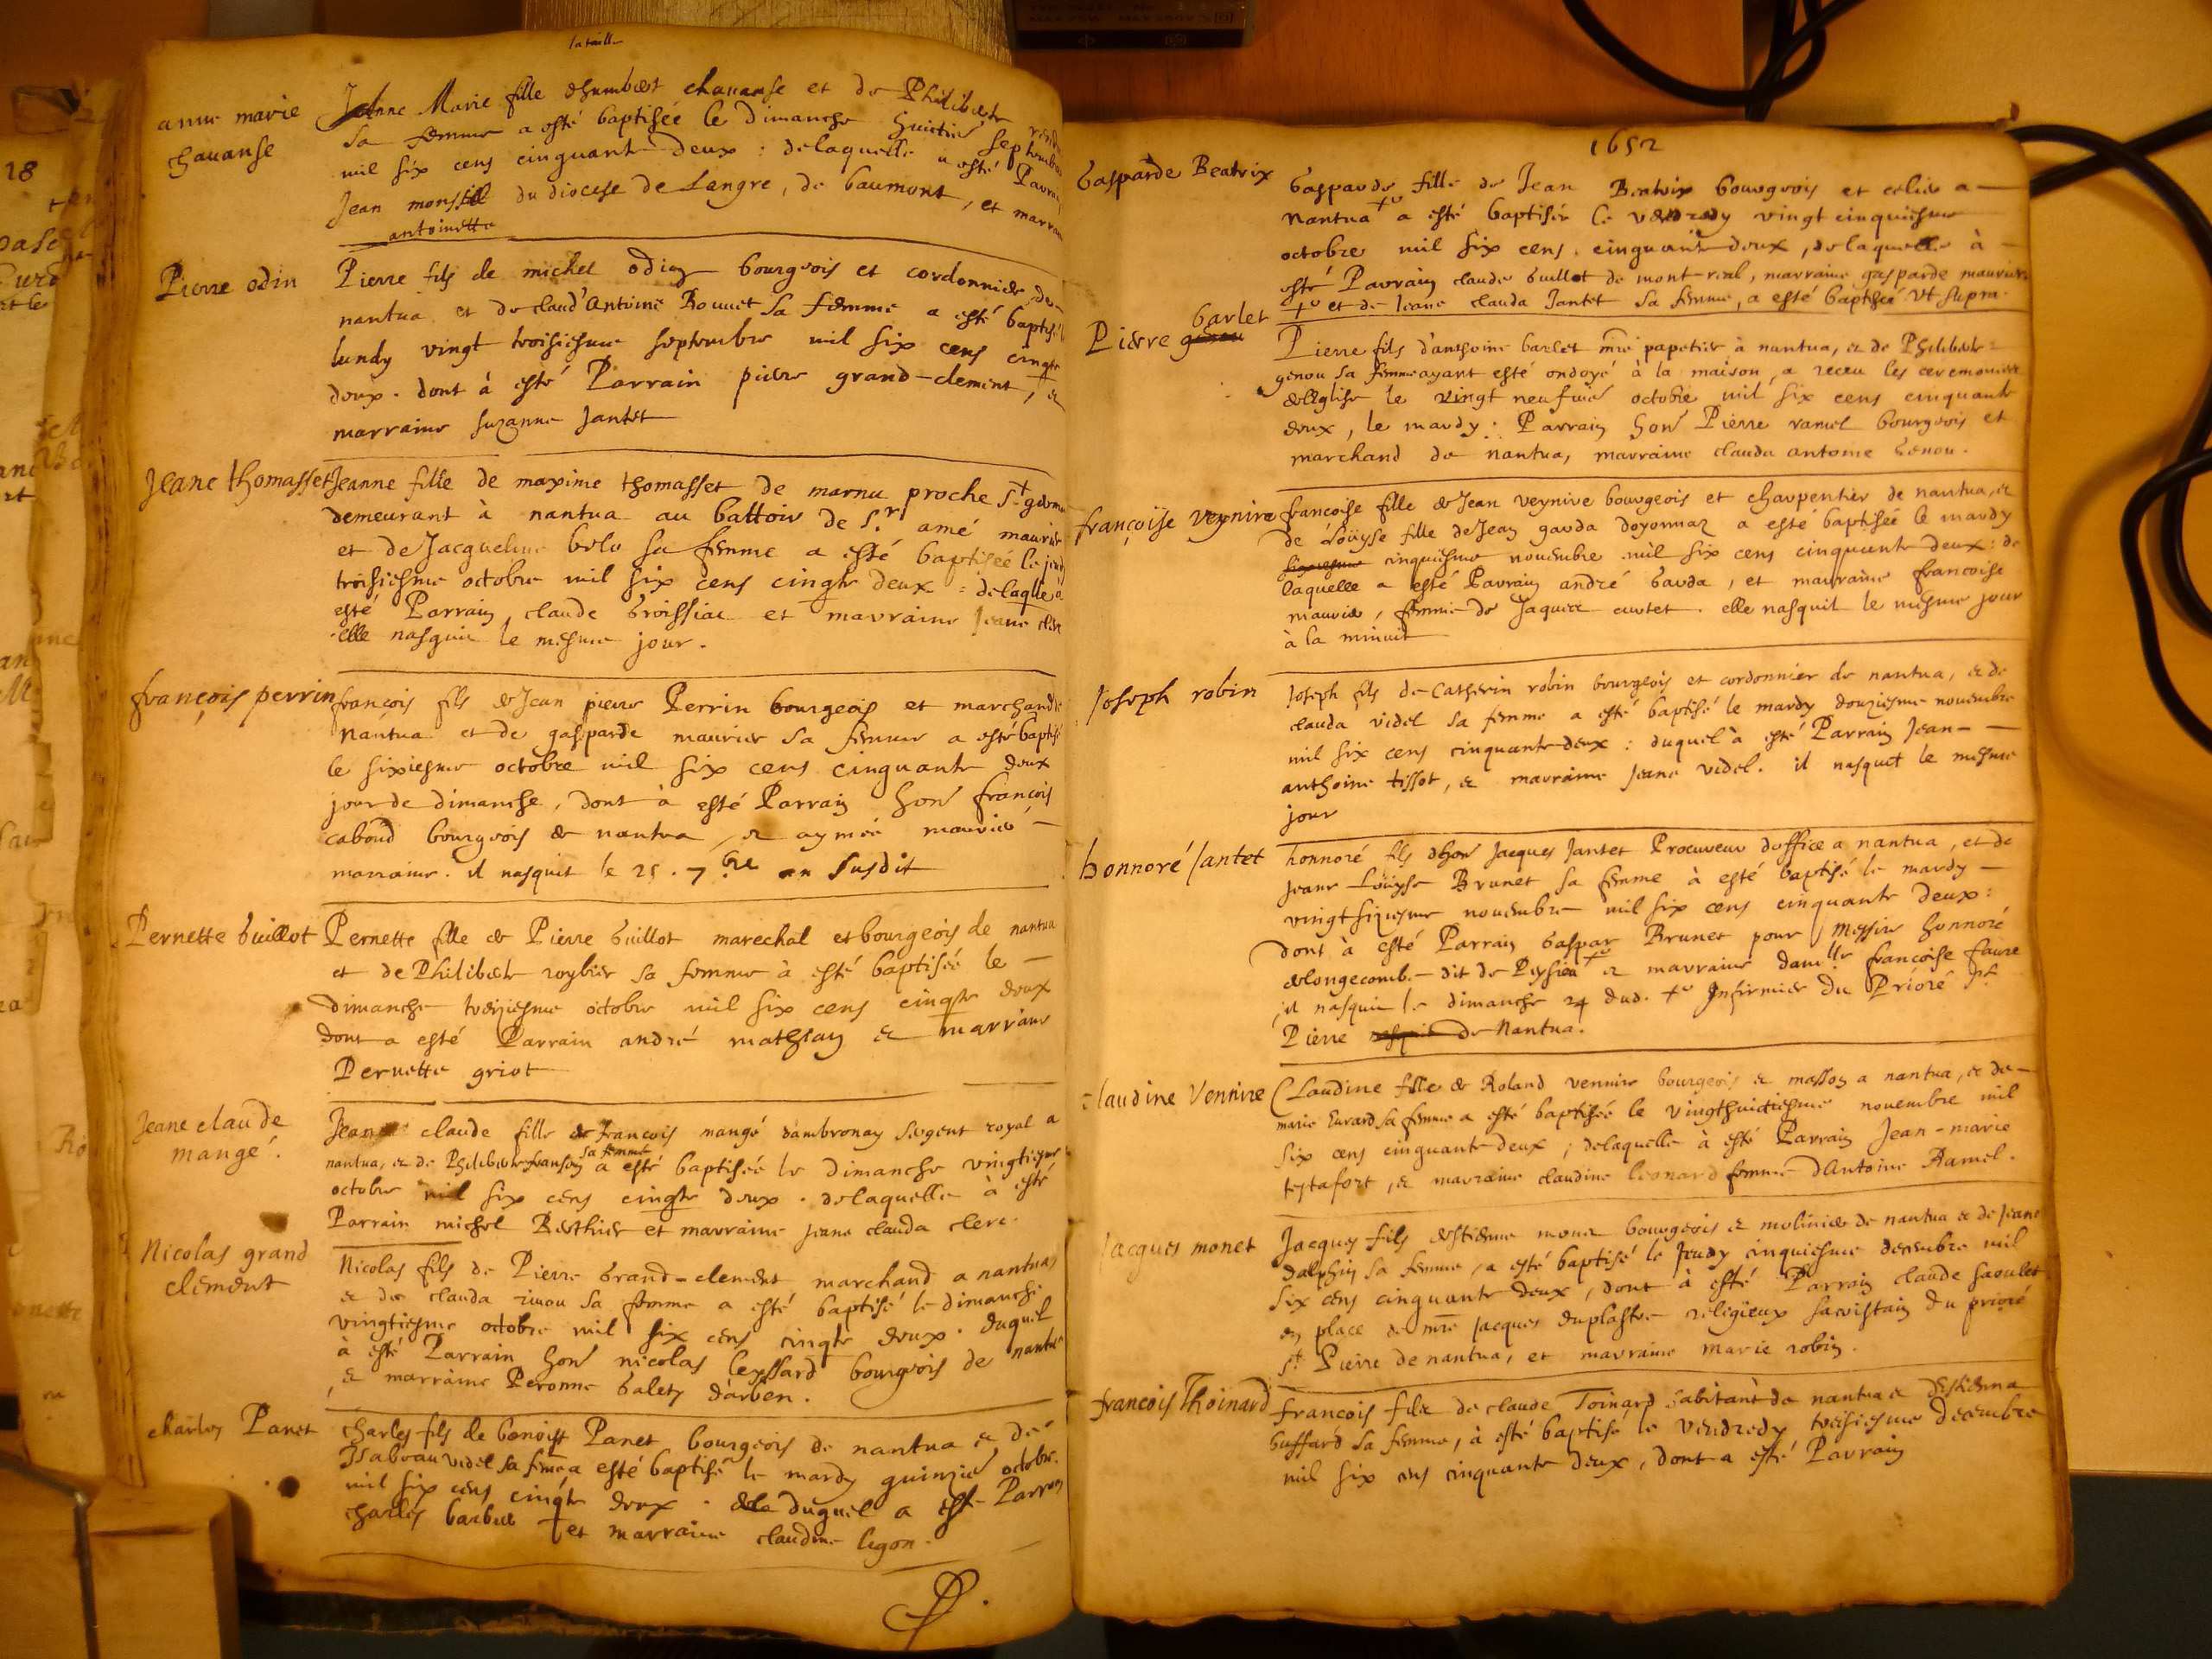 anne marie
chavanse
Jeanne Marie fille dhumbert chavanse et de Philiberte
sa femme a esté baptisée le dimanche huictie septembre
mil six cens cinquante deux : delaquelle a esté Parrain
Jean du diocese de Langre, de baumont, et marraine
antoinette
Pierre odin
Pierre fils de michel odin bourgeois et cordonnier de
nantua et de claud'Antoine Bouuet sa femme a esté baptisé
lundy vingt troisiesme septembre mil six cens cingte
deux. dont à esté Parrain pierre grand-clement, &
marraine suzanne Jantet
Jeane thomasset
Jeanne fille de maxime thomasset de marnu proche St
demeurant à nantua au battoir de S.r amé maurier
et de Jacqueline bolo sa femme a esté baptisée le jeudy
troisiesme octobre mil six cens cingte deux : delaqlle a
esté Parrain claude broissiat et marraine Jeane
elle nasquit le mesme jour.
françois perrin
françois fils de Jean pierre Perrin bourgeois et marchand de
Nantua et de gasparde maurier sa femme a esté baptisé
le sixiesme octobre mil six cens cinquante deux
jour de dimanche, dont à esté Parrain hon françois
caboud bourgeois de nantua, & aymée maurier
marraine. il nasquit le 25. 7bre an susdit
Pernette Guillot
Pernette fille de Pierre Guillot marechal et bourgeois de nantua
et de Philiberte roybier sa femme à esté baptisée le
dimanche treziesme octobre mil six cens cingte deux
dont a esté Parrain andré mathian & marraine
Pernette griot
Jeane claude
mangé.
Jeane claude fille de françois mangé dambronay sergent royal a
nantua, & de Philiberte franson sa femme a esté baptisée le dimanche vingtiesme
octobre mil six cens cingte deux. delaquelle à esté
Parrain michel Berthier et marraine Jeane clauda clerc.
Nicolas grand
clement
Nicolas fils de Pierre Grand-clement marchand a nantua,
& de clauda sa femme a esté baptisé le dimanche
vingtiesme octobre mil six cens cingte deux. duquel
à esté Parrain hon nicolas leyssard bourgeois de nantua
& marraine Peronne Galety d'arben.
charles Panet
charles fils de benoist Panet bourgeois de nantua & de
Isabeau videl sa femme a esté baptisé le mardy quinzie octobre
mil six cens cingte deux. duquel a esté Parrain
charles barbier et marraine claudine ligon.
1652
Gasparde Beatrix
Gasparde fille de Jean Beatrix bourgeois et celier a
nantua a esté baptisée le vendredy vingt cinquiesme
octobre mil six cens. cinquante deux, delaquelle à
esté Parrain claude Guillot de mont-real, marraine gasparde maurier
et de Jeane clauda Jantet sa femme, a esté baptisée Vt supra.
Pierre barlet
Pierre fils d'anthoine barlet mre papetier à nantua, & de Philiberte
genou sa femme ayant esté ondoyé à la maison, a receu les ceremonies
de leglise le vingt neufuie octobre mil six cens cinquante
deux, le mardy : Parrain hon Pierre ramel bourgeois et
marchand de nantua, marraine clauda antoine Genou.
françoise veynire
francoise fille de Jean veynire bourgeois et charpentier de nantua, &
de Loüyse fille de Jean gauda doyonnaz a esté baptisée le mardy
cinquiesme nouembre mil six cens cinquante deux : de
laquelle a esté Parrain andré Gauda, et marraine francoise
maurier, femme de Jaques curtet. elle nasquit le mesme jour
à la minuit
Joseph robin
Joseph fils de Catherin robin bourgeois et cordonnier de nantua, & de
clauda videl sa femme a esté baptisé le mardy douziesme nouembre
mil six cens cinquante deux : duquel à esté Parrain Jean-
anthoine tissot, & marraine Jeane videl. il nasquit le mesme
jour
honnoré Jantet
honnoré fils dhon Jacques Jantet Procureur doffice a nantua, et de
Jeane Loüyse Brunet sa femme à esté baptisé le mardy
vingtsixiesme nouembre mil six cens cinquante deux :
dont à esté Parrain Gaspar Brunet pour Messire honnoré
delongecombe dit de Peysieu & marraine damlle francoise faure
il nasquit le dimanche 24 dud. Infirmier du Prioré St
Pierre de Nantua.
claudine Vennire
Claudine fille de Roland vennire bourgeois & masson a nantua, & de
marie Eurard sa femme a esté baptisée le vingthuictiesme nouembre mil
six cens cinquante deux ; delaquelle à esté Parrain Jean-marie
testafort, & marraine claudine leonard femme d'Antoine Ramel.
Jacques monet
Jacques fils destienne monet bourgeois & molinier de nantua & de Jeane
dalphin sa femme, a esté baptisé le Jeudy cinquiesme decembre mil
six cens cinquante deux, dont à esté Parrain claude saoulet
en place de mre Jacques duplastre religieux sacristain du prioré
St Pierre de nantua, et marraine Marie robin.
francois Thoinard
Francois filz de claude Toinard habitant de nantua & d'Estienna
buffard sa femme, à esté baptisé le Vendredy treiziesme decembre
mil six cens cinquante deux, dont a esté Parrain